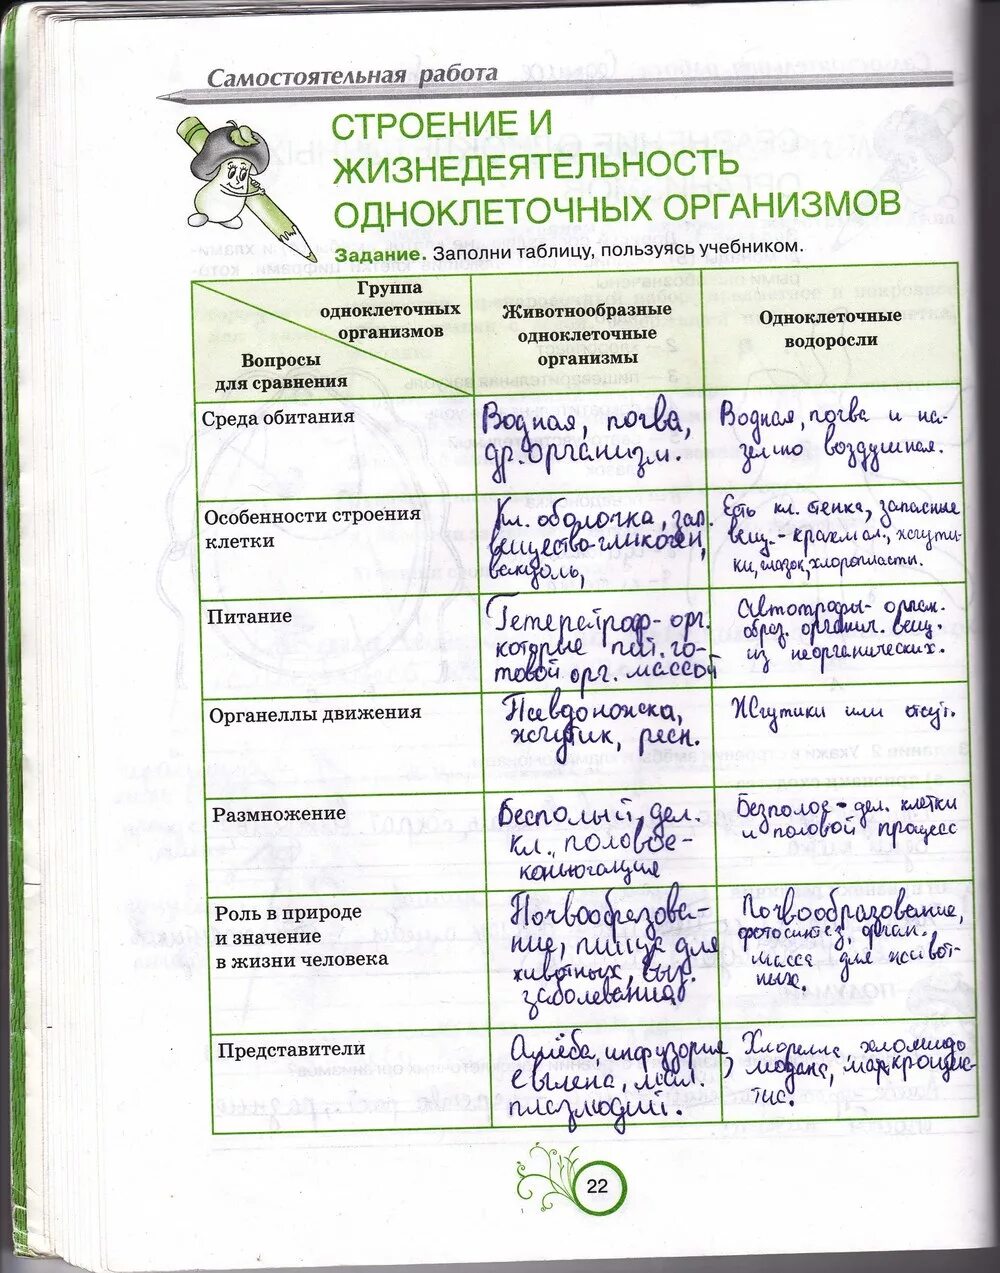 Самостоятельная работа
СТРОЕНИЕ И
ЖИЗНЕДЕЯТЕЛЬНОСТЬ
ОДНОКЛЕТОЧНЫХ ОРГАНИЗМОВ
Задание. Заполни таблицу, пользуясь учебником.
Группа
одноклеточных
организмов
Вопросы
для сравнения
Животнообразные
одноклеточные
организмы
Одноклеточные
водоросли
Среда обитания
Водная, почва,
др. организм.
Водная, почва и на-
земно воздушная.
Особенности строения
клетки
Кл. оболочка, зап.
вещество-гликоген,
вакуоль,
Есть кл. стенка, запасные
вещ. - крахмал., жгути-
ки, глазок, хлоропласты.
Питание
Гетеретраф- орг.
которые пит. го-
товой орг. массой
Автотрофы- орган.
образ. органич. вещ.
из неорганических.
Органеллы движения
Псевдоножка,
жгутик, ресн.
Жгутики или отсут.
Размножение
Бесполый, дел.
кл., половое-
конъюгация
Безполое - дел. клетки
и половой процесс
Роль в природе
и значение
в жизни человека
Почвообразова-
ние, пища для
животных, выз.
заболевания
Почвообразование,
фотосинтез, орган.
масса для живот-
ных.
Представители
Амёба, инфузория,
эвглена, мал.
плазмодий.
Хлорелла, хломидо
модана,
тис.
22